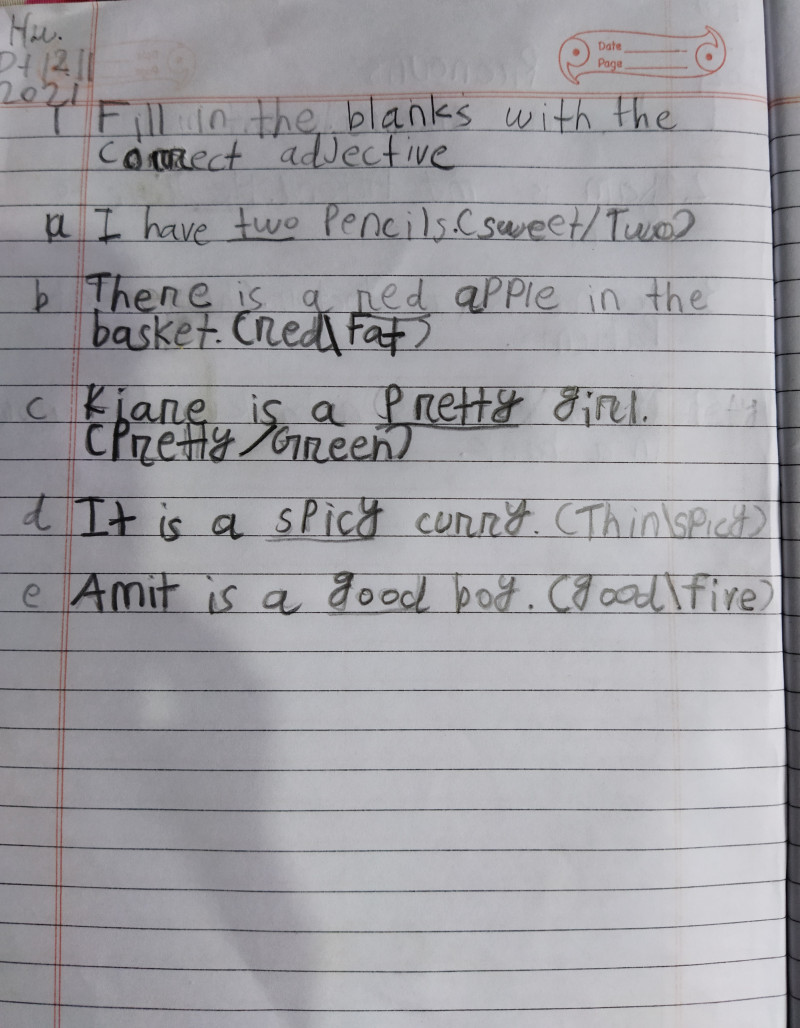 H.w.
Dt 12.11
2021
Date
Page
1 Fill in the blanks with the
Correct adjective
a I have two Pencils. (sweet/Two)
b There is a red apple in the
basket. (red\Fat)
c Kiare is a Pretty girl.
(Pretty/Green)
d It is a spicy curry. (Thin\spicy)
e Amit is a good boy. (good\fire)